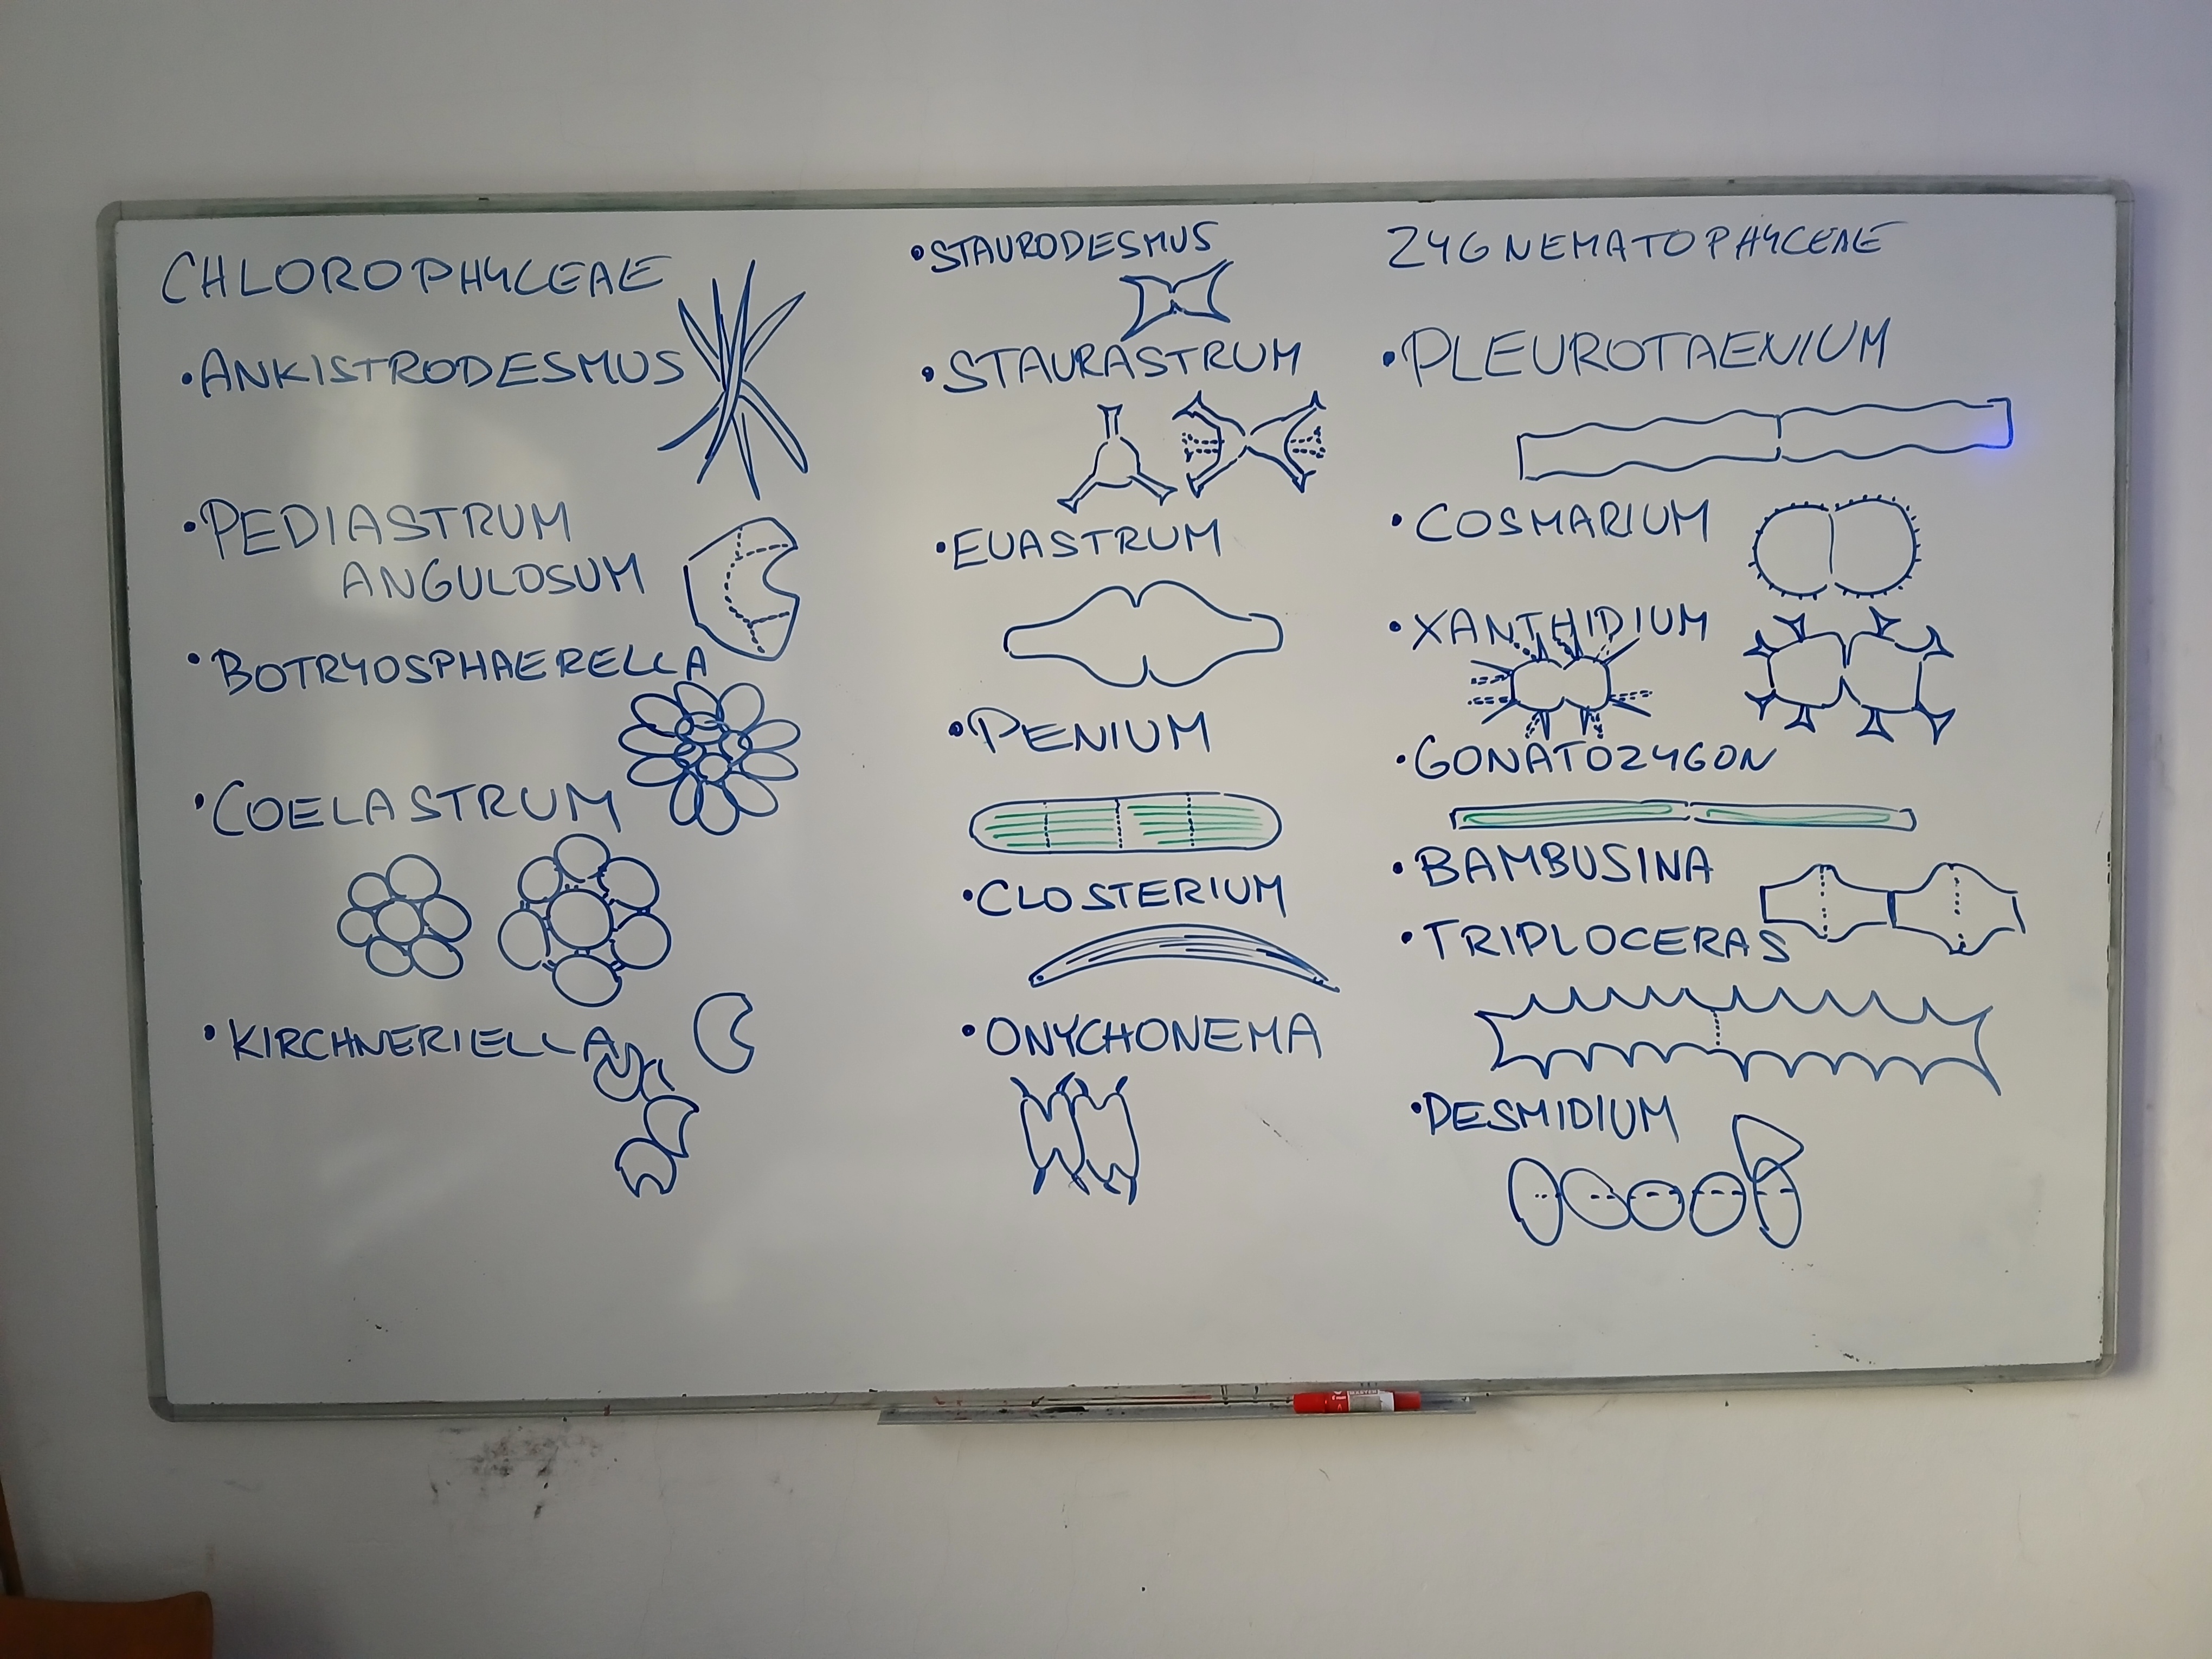 CHLOROPHYCEAE
•ANKISTRODESMUS
•PEDIASTRUM
ANGULOSUM
•BOTRYOSPHAERELLA
•COELASTRUM
•KIRCHNERIELLA
•STAURODESMUS
•STAURASTRUM
•EUASTRUM
•PENIUM
•CLOSTERIUM
•ONYCHONEMA
ZYGNEMATOPHYCEAE
•PLEUROTAENIUM
•COSMARIUM
•XANTHIDIUM
•GONATOZYGON
•BAMBUSINA
•TRIPLOCERAS
•DESMIDIUM